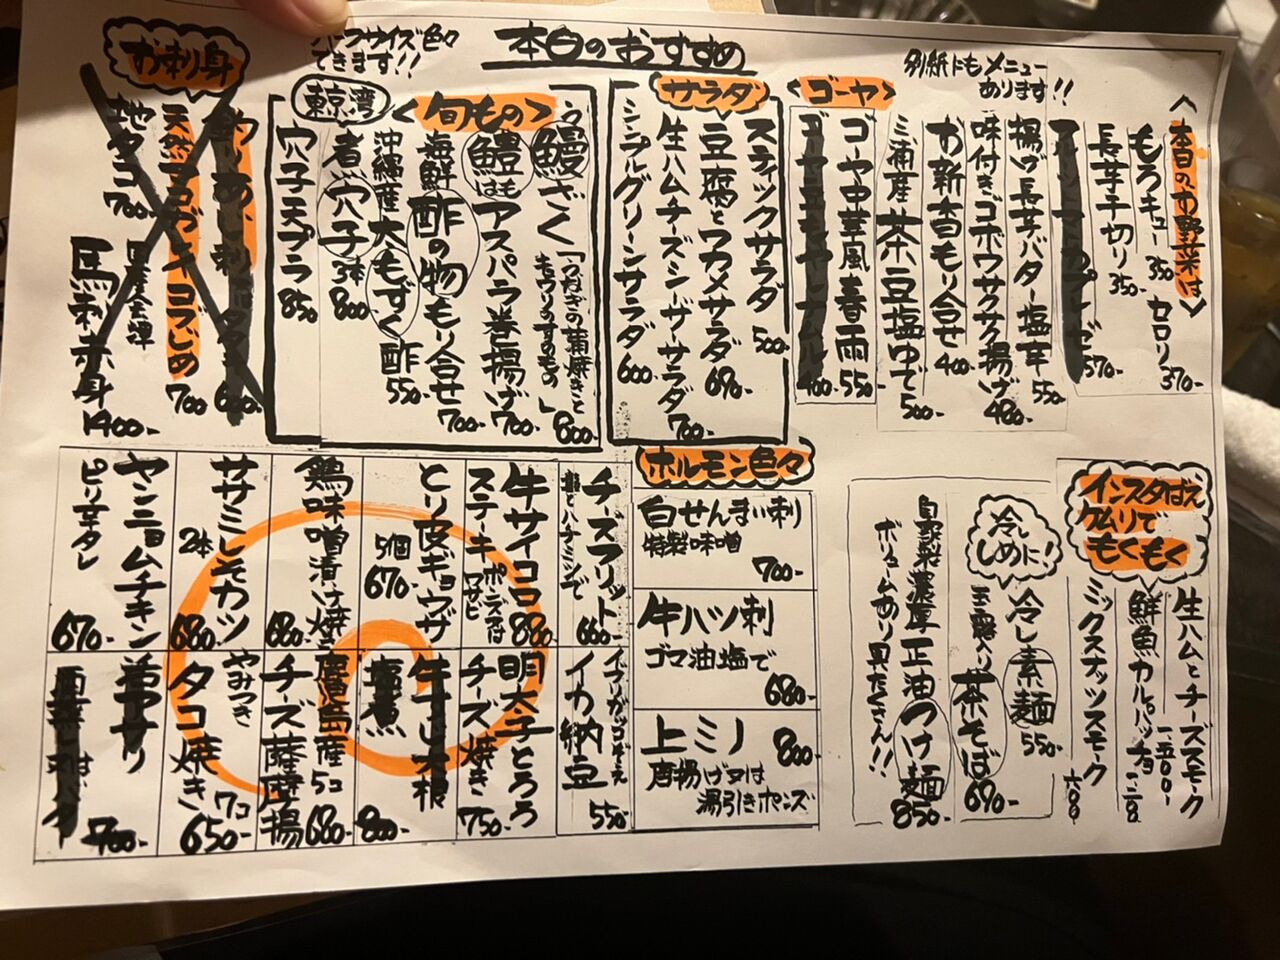 本日のおすすめ
ハーフサイズ色々
できます!!
別紙にもメニュー
あります!!
<本日のお野菜は>
もろキュー 350
セロリ 370-
長芋千切り 350-
570-
揚げ長芋バター塩辛 550-
味付きゴボウサクサク揚げ 480-
お新香もり合せ 400-
三浦産茶豆塩ゆで 500-
<ゴーヤ>
ゴーヤ中華風春雨 550
400-
サラダ
スティックサラダ 500-
豆腐とワカメサラダ 690-
生ハムチーズシーザーサラダ 700-
シンプルグリーンサラダ 600-
<旬もの>
う
鰻ざく「うなぎの蒲焼きと
キュウリのすのもの」 800-
鱧はもアスパラ巻揚げ 700-
海鮮酢の物もり合せ 700-
沖縄産大もずく酢 550-
東京湾
煮穴子 3本 800
穴子天プラ 850
お刺身
600-
700
地タコ 700-
国産
馬刺赤身 1400-
インスタばえ
ケムリで
もくもく
生ハムとチーズスモーク 一五〇〇-
鮮魚カルパッチョ
ミックスナッツスモーク 六〇〇
冷し
しめに!
冷し素麺 550-
茶そば 690-
自家製濃厚正油つけ麺 850-
ボリュームあり具たくさん!!
ホルモン色々
白せんまい刺
特製味噌
700-
牛ハツ刺
ゴマ油塩で
680-
上ミノ 800-
唐揚げ又は
湯引きポンズ
チーズフリット 660-
塩とハチミツで
牛サイコロ
ステーキ ポンズ又は
ワサビ
880-
とり皮ギョウザ
5個
670-
鶏味噌漬け焼 680-
ササミしそカツ
2本
680-
ヤンニョムチキン
ピリ辛タレ
670-
イカ納豆 550-
明太子とろろ
チーズ焼き 750-
牛すじ大根
塩煮
800-
鹿児島産 5コ
チーズ薩摩揚 680-
やみつき
タコ焼き 7コ
650-
アサリ
700-